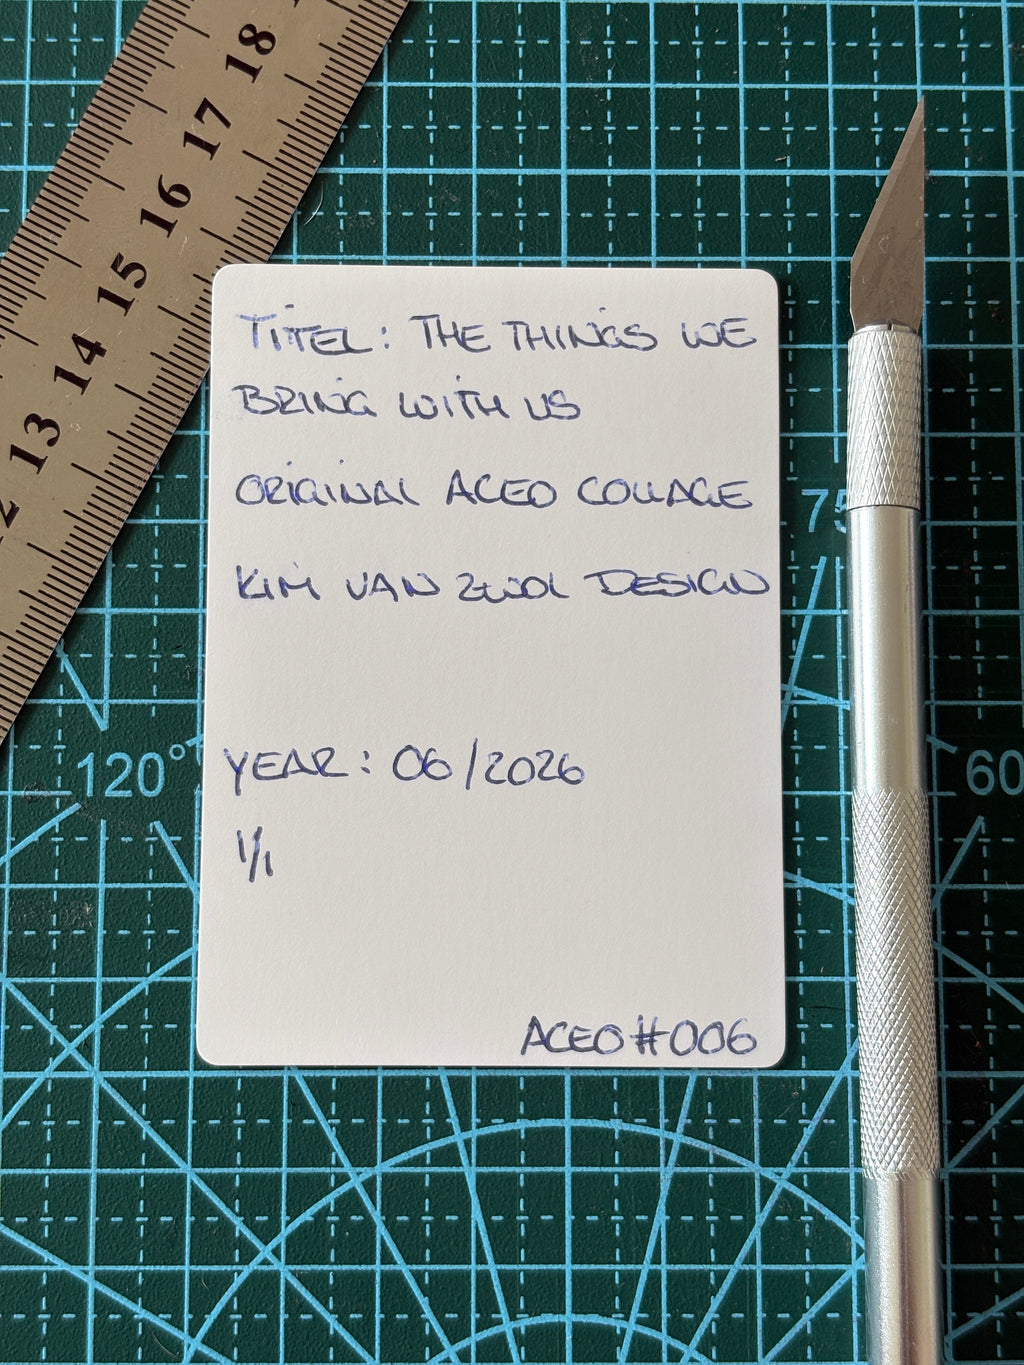 18
17
16
15
14
13
2
TITEL: THE THINGS WE
BRING WITH US
ORIGINAL ACEO COLLAGE
KIM VAN ZWOL DESIGN
YEAR: 06/2026
1/1
ACEO#006
75
120°
60